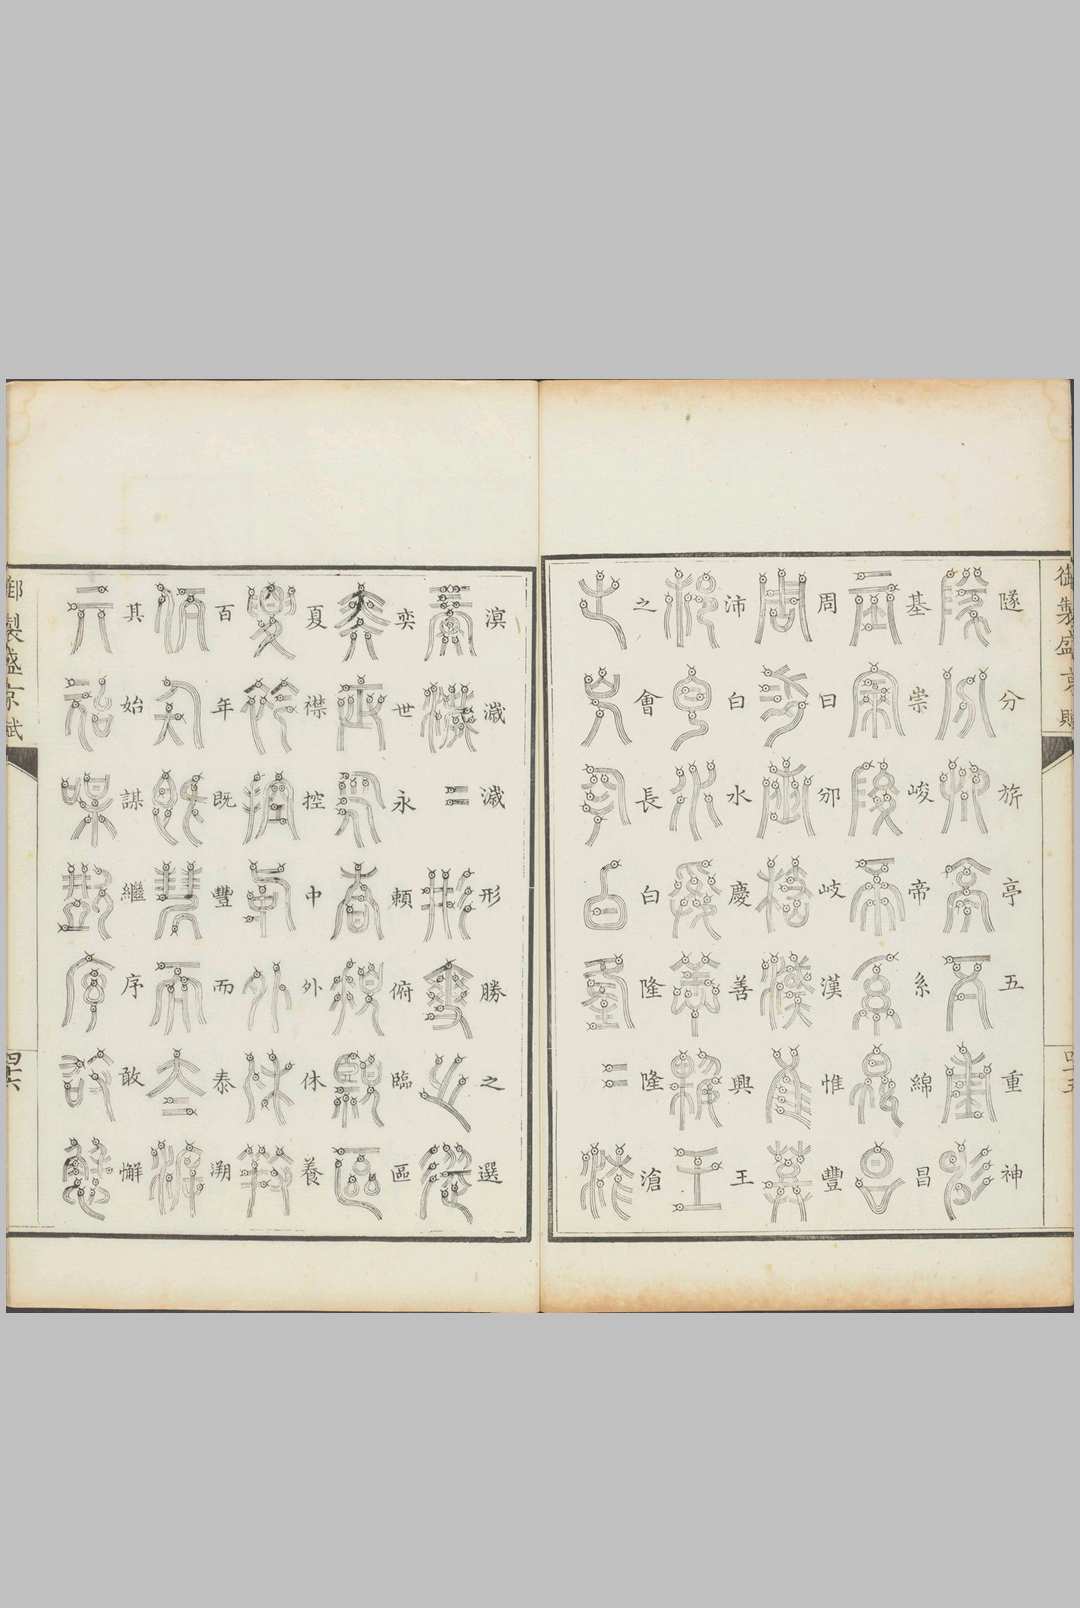 御製盛京賦
四十五
隧分旂亭五重神
基崇峻帝系綿昌
周曰邠岐漢惟豐
沛白水慶善興王
之會長白隆隆滄
溟濊濊形勝之選
奕世永賴俯臨區
夏襟控中外休養
百年既豐而泰溯
其始謀繼序敢懈
御製盛京賦
四十六